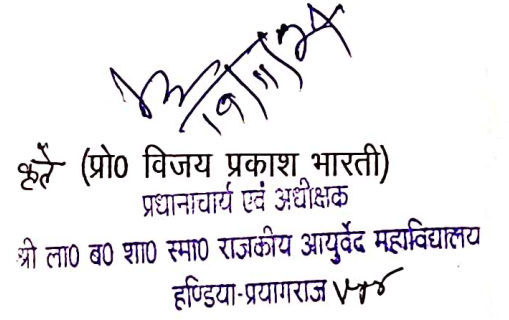 19/11/24
कृते (प्रो0 विजय प्रकाश भारती)
प्रधानाचार्य एवं अधीक्षक
श्री ला0 ब0 शा0 स्मा0 राजकीय आयुर्वेद महाविद्यालय
हण्डिया-प्रयागराज